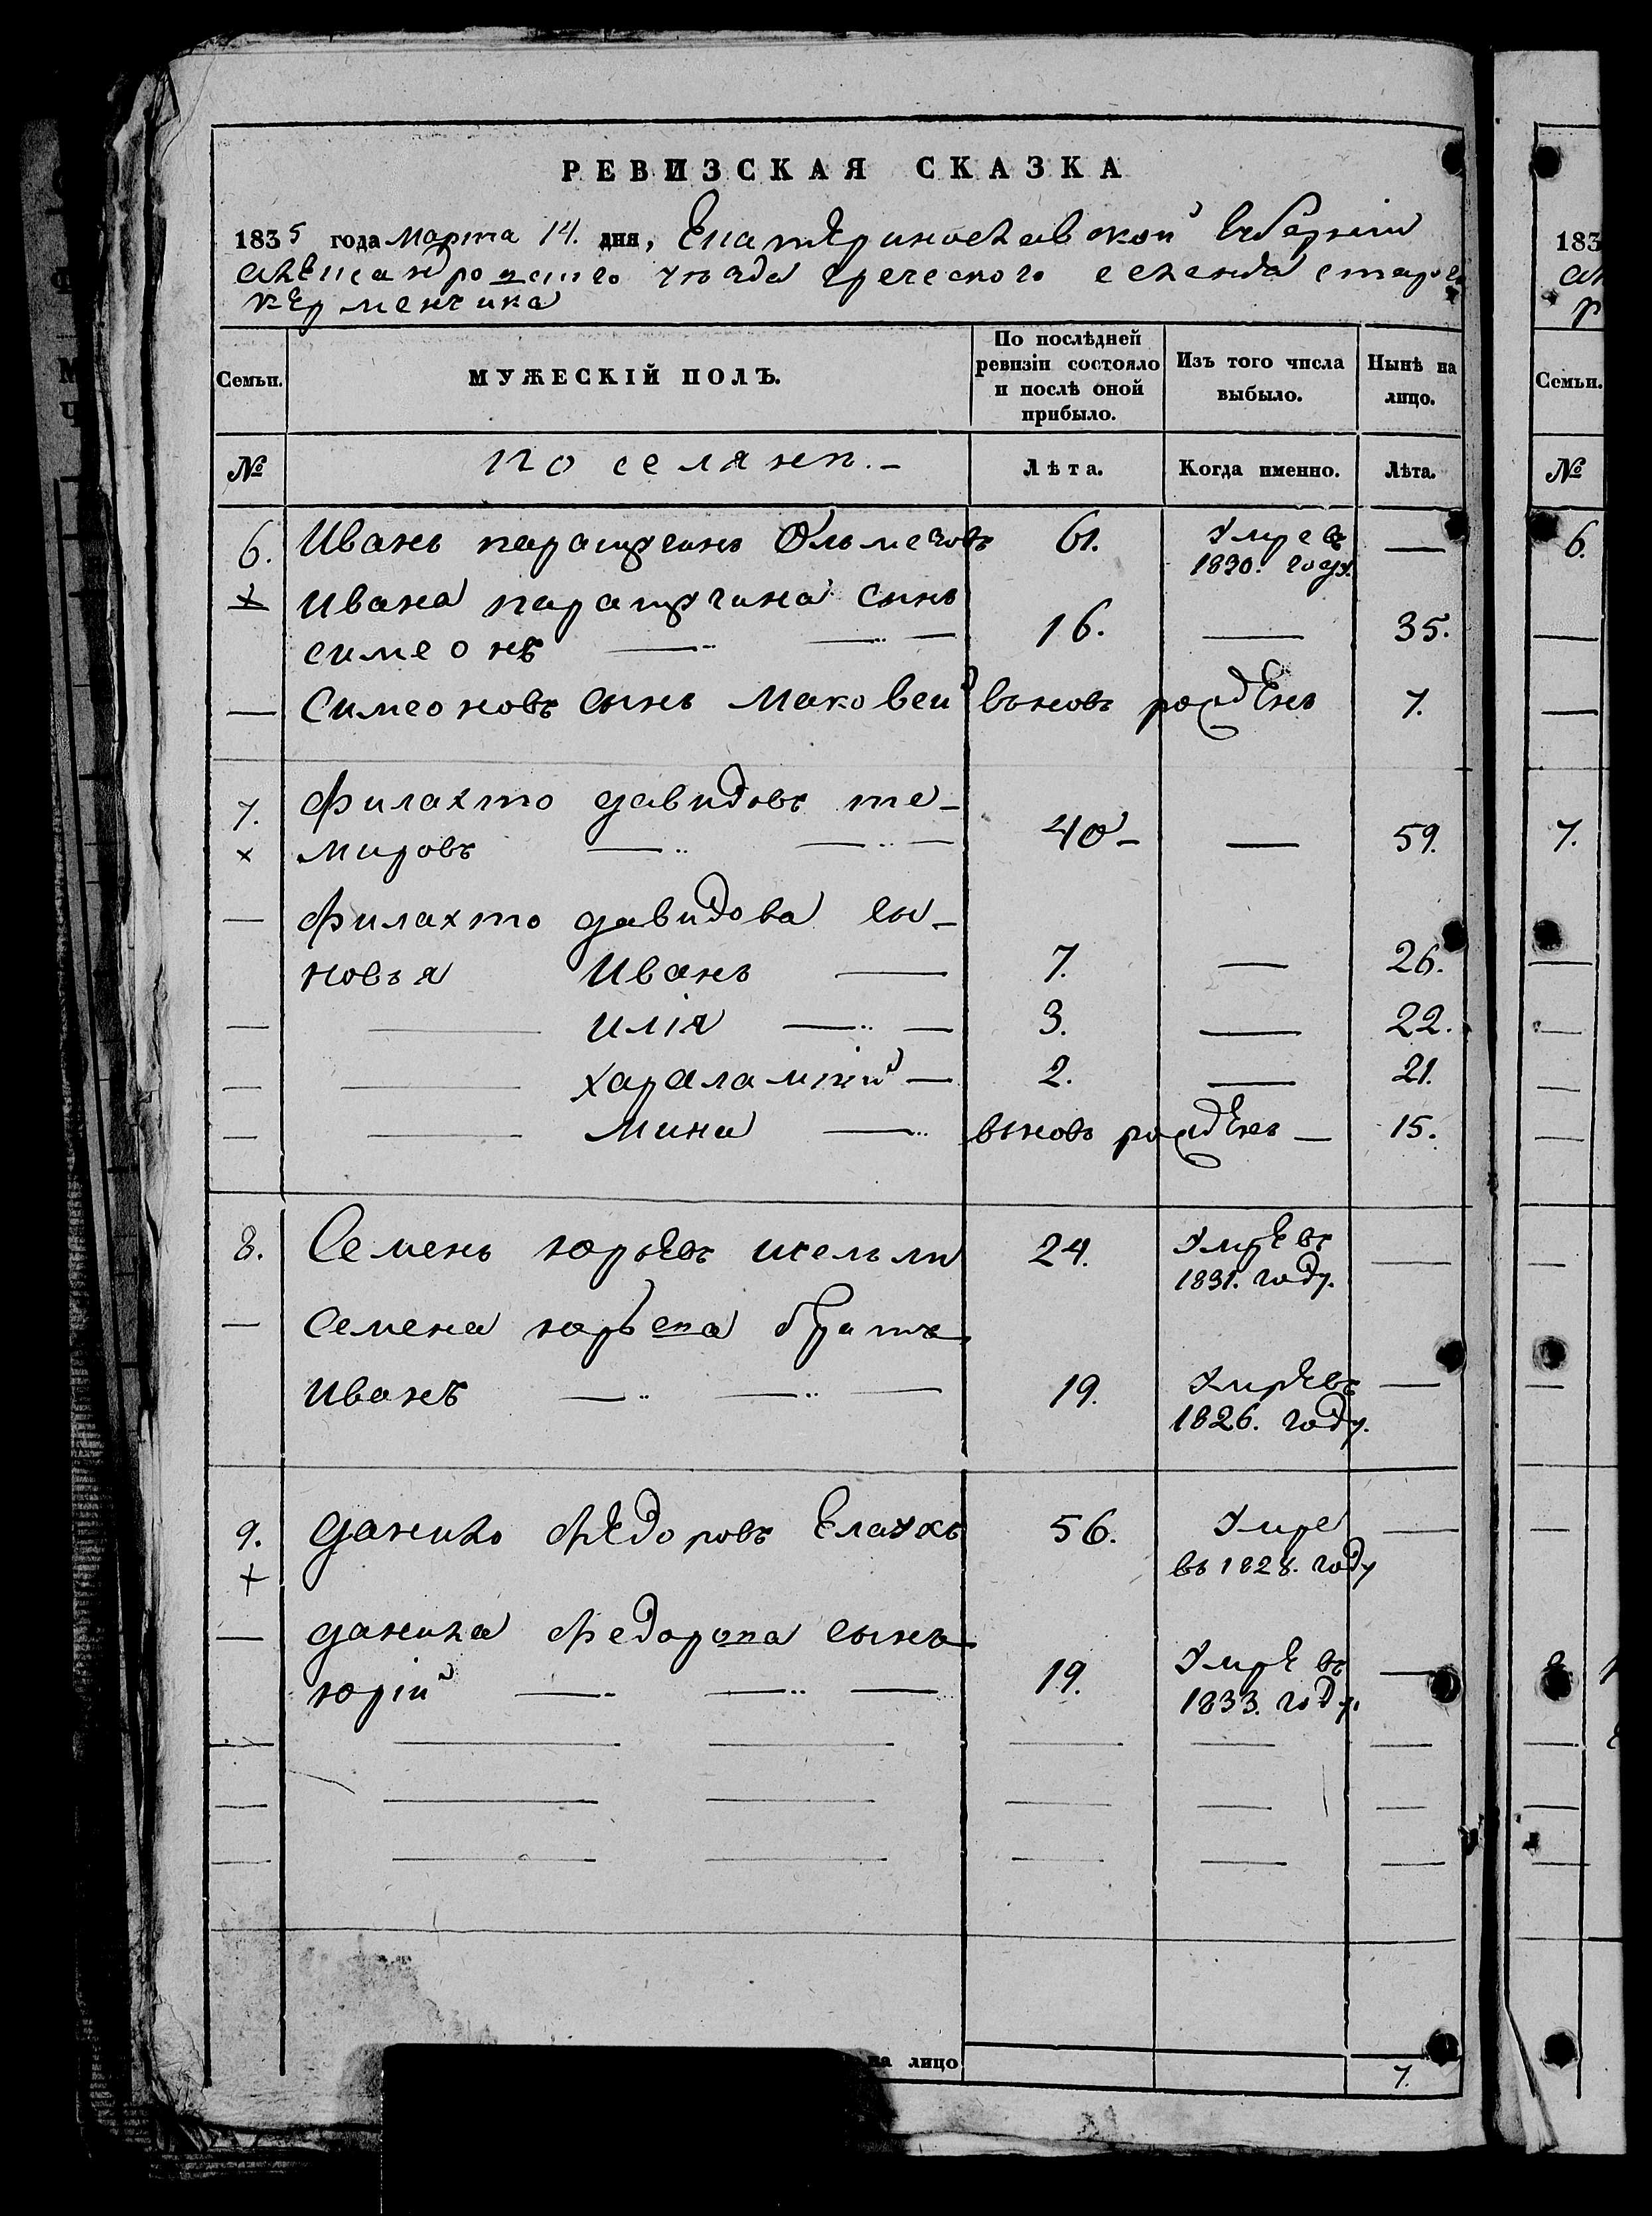 РЕВИЗСКАЯ СКАЗКА
1835 года марта 14. дня, Екатеринославской Губернии
Александровского уезда греческого селенда старог
керменчика
Семьи. МУЖЕСКІЙ ПОЛЪ. По послѣдней ревизіи состояло и послѣ оной прибыло. Изъ того числа выбыло. Нынѣ на лицо.
№ поселянъ.- Лѣта. Когда именно. Лѣта.
6. Иванъ паращеинъ 61. Умре въ —
1830. году.
Ивана сынъ
симеонъ 16. — 35.
— Симеоновъ сынъ Маковей вьновъ рожденъ 7.
7. Филахто давидовъ те-
мировъ 40- — 59.
— Филахто давидова сы-
новья Иванъ — 7. — 26.
— илія — 3. — 22.
— харалампий — 2. — 21.
— Мина — вьновъ рожденъ — 15.
8. Семенъ юрьевъ 24. Умре въ —
1831. году.
— Семена юрьева братъ
иванъ 19. Умре въ —
1826. году.
9. данило Федоровъ 56. Умре —
въ 1828. году
— данила Федорова сынъ
юрій 19. Умре въ —
1833. году.
на лицо 7.
183
Семьи.
№
6.
7.